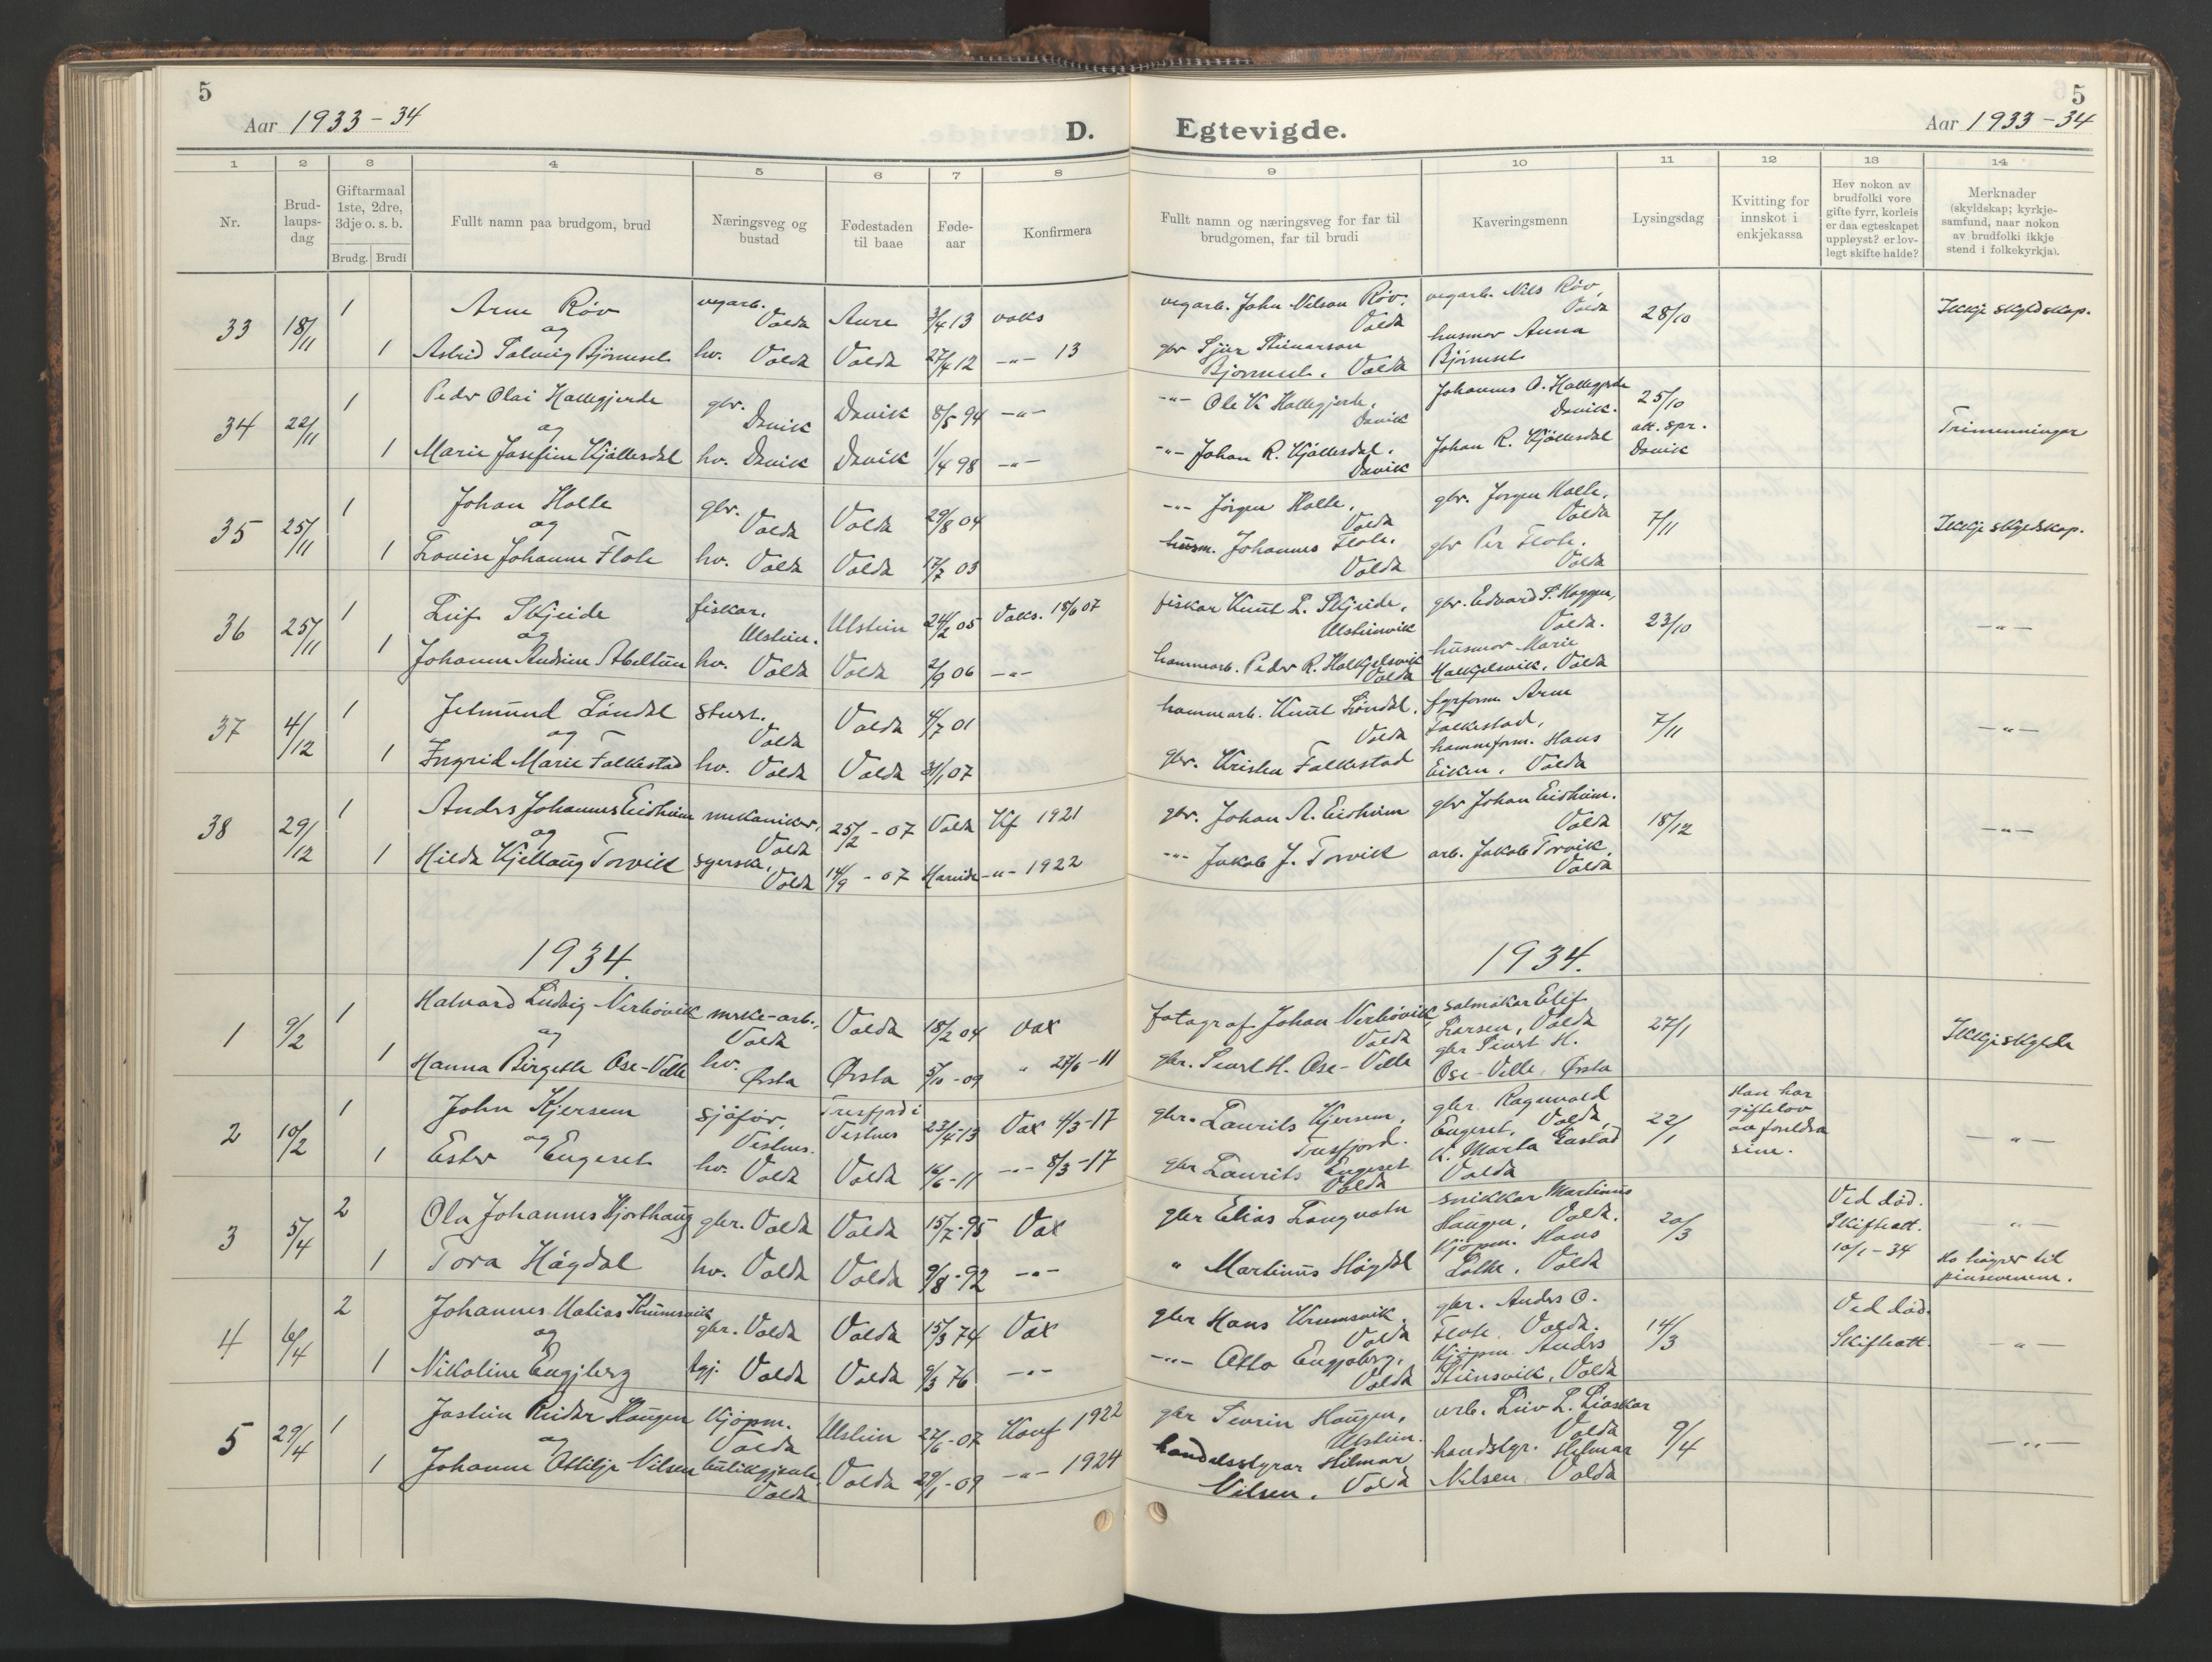 5
Aar 1933-34
D.
Egtevigde.
5
Aar 1933-34
1 2 3 4 5 6 7 8
9 10 11 12 13 14
Nr.
Brud-
laups-
dag
Giftarmaal
1ste, 2dre,
3dje o. s. b.
Brudg. Brudi
Fullt namn paa brudgom, brud
Næringsveg og
bustad
Fødestaden
til baae
Føde-
aar
Konfirmera
Fullt namn og næringsveg for far til
brudgomen, far til brudi
Kaveringsmenn
Lysingsdag
Kvitting for
innskot i
enkjekassa
Hev nokon av
brudfolki vore
gifte fyrr, korleis
er daa egteskapet
uppløyst? er lov-
legt skifte halde?
Merknader
(skyldskap; kyrkje-
samfund, naar nokon
av brudfolki ikkje
stend i folkekyrkja).
33 18/11 1 Arne Røv vegarb. Volda Aure 3/4 13 vaks
og
1 Astrid Solveig Bjørneset hv. Volda Volda 27/4 12 -"- 13
vegarb. John Nilson Røv, Volda
vegarb. Nils Røv, Volda
28/10
Ikkje skyldskap.
gbr Sjur Steinarson
Bjørneset, Volda
husmor Anna
Bjørneset
34 22/11 1 Peder Olai Hallegjerde gbr. Davik Davik 8/5 94 -"-
og
1 Marie Josefine Kjøllesdal hv. Davik Davik 1/4 98 -"-
-"- Ole K Hallegjerde, Davik
Johannes O. Hallegjerde
Davik.
25/10
att. spr.
Davik
Trimenningar
-"- Johan R. Kjøllesdal, Davik
Johan R. Kjøllesdal
35 25/11 1 Johan Halle gbr. Volda Volda 29/8 04
og
1 Lovise Johanne Flote hv. Volda Volda 17/7 03
-"- Jørgen Halle, Volda
gbr. Jørgen Halle, Volda
7/11
Ikkje skyldskap.
husm. Johannes Flote, Volda
gbr Per Flote, Volda
36 25/11 1 Leif Skjeide fiskar, Ulstein. Ulstein 24/2 05 Vaks. 18/6 07
og
1 Johanne Andrine Abeltun hv. Volda Volda 2/9 06 -"-
fiskar Knut L. Skjeide, Ulsteinvik
gbr. Edvard P. Haggen, Volda.
23/10
-"-
hamnearb. Peder R. Halkjelsvik Volda
husmor Marie
Halkjelsvik, Volda
37 4/12 1 Jetmund Løndal stud. Volda Volda 4/7 01
og
1 Ingrid Marie Falkestad hv. Volda Volda 31/1 07
hamnearb. Knut Løndal, Volda
fyrform. Arne
Falkestad,
7/11
-"-
gbr. Kristen Falkestad
hamneform. Hans
Eiken, Volda
38 29/12 1 Anders Johannes Eidheim mekaniker, Volda 25/2 - 07 Volda Kf 1921
og
1 Hilda Kjellaug Torvik syerske, Volda 14/9 - 07 Hareide -"- 1922
gbr. Johan A. Eidheim
gbr Johan Eidheim. Volda
18/12
-"-
-"- Jakob J. Torvik
arb. Jakob Torvik, Volda
1934.
1934.
1 9/2 1 Halvard Ludvig Nerhøvik møbe-arb., Volda Volda 18/2 04 Vax
og
1 Hanna Birgette Ose-Velle hv. Ørsta Ørsta 5/10 - 09 " 27/6 - 11
fotograf Johan Nerhøvik, Volda
salmakar Elif
Larsen, Volda
27/1
Ikkje skylde
gbr. Sivert H. Ose-Velle
gbr Sivert H.
Ose-Velle, Ørsta
2 10/2 1 John Kjersem sjåfør, Vestnes. Tresfjord i Vestnes 23/4 - 13 Vax 4/3 - 17
og
1 Ester Engeset hv. Volda Volda 16/6 - 11 -"- 8/3 - 17
gbr. Laurits Kjersem, Tresfjord.
gbr Ragnvald
Engeset, Volda,
22/1
Han har
giftelov
av foreldra
sine.
-"-
gbr Laurits Engeset Volda
K. Marta Gustad
Volda
3 5/4 2 Ola Johannes Hjorthaug gbr. Volda Volda 15/7 - 95 Vax
1 Tora Høgdal hv. Volda Volda 9/8 - 92 -"-
gbr Elias Langvatn
snikkar Martinus
Haugen, Volda.
20/3
Ved død.
Skifteatt.
10/1 - 34
-"-
" Martinus Høgdal
kjøpm. Hans
Lothe, Volda
Ho høyrer til
pinsevenene.
4 6/4 2 Johannes Matias Krumsvik gbr. Volda Volda 15/3 74 Vax
og
1 Nikoline Engjberg tgj. Volda Volda 9/3 76 -"-
gbr Hans Krumsvik, Volda
gbr. Anders O.
Flote, Volda.
14/3
Ved død.
Skifteatt.
-"-
-"- Otto Engjaberg, Volda
Kjøpm. Anders
Steinsvik, Volda
5 29/4 1 Jostein Reidar Haugen kjøpm. Volda Ulstein 22/6 - 07 Konf 1922
og
1 Johanne Ottilje Nilsen butikkgjente, Volda Volda 29/1 - 09 -"- 1924
gbr Severin Haugen, Ulstein.
arb. Leiv L. Liaskar
Volda
9/4
-"-
handelsstyrar Hilmar
Nilsen, Volda
handstyr. Hilmar
Nilsen, Volda